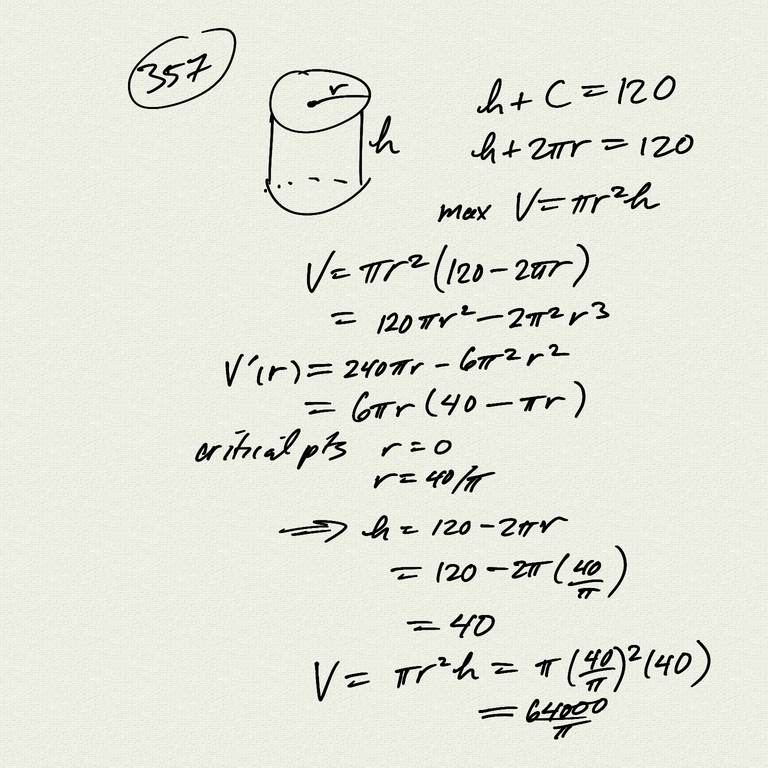 357
r
h
h + C = 120
h + 2πr = 120
max V = πr²h
V = πr²(120 - 2πr)
= 120πr² - 2π²r³
V'(r) = 240πr - 6π²r²
= 6πr(40 - πr)
critical pts r = 0
r = 40/π
⟹ h = 120 - 2πr
= 120 - 2π(40/π)
= 40
V = πr²h = π(40/π)²(40)
= 64000/π